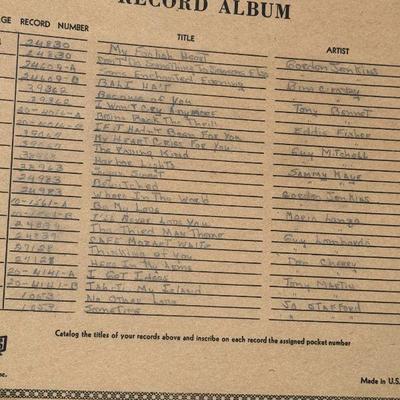 RECORD ALBUM
AGE RECORD NUMBER TITLE ARTIST
24830 My Foolish Heart Gordon Jenkins
24830 Don't Do Something To Someone Else "
24609-A Some Enchanted Evening Bing Crosby
24609-B BALI HA'I "
39362 Because of You Tony Bennet
39362 I Won't Cry Anymore "
Bring Back The Thrill Eddie Fisher
If It Hadn't Been For You "
My Heart Cries For You Guy Mitchell
The Roving Kind "
Harbor Lights Sammy Kaye
Sugar Sweet "
24983 Bewitched Gordon Jenkins
24983 Where In The World "
10-1561-A Be My Love Mario Lanza
10-1561-B I'll Never Love You "
24839 The Third Man Theme Guy Lombardo
24839 CAFE MOZART WALTZ "
27128 Thinking of You Don Cherry
27128 Here In My Arms "
20-4141-A I Get Ideas Tony Martin
20-4141-B Tahiti My Island "
1053 No Other Love Jo STAFFORD
1053 Sometime "
Catalog the titles of your records above and inscribe on each record the assigned pocket number
nc.
Made in U.S.